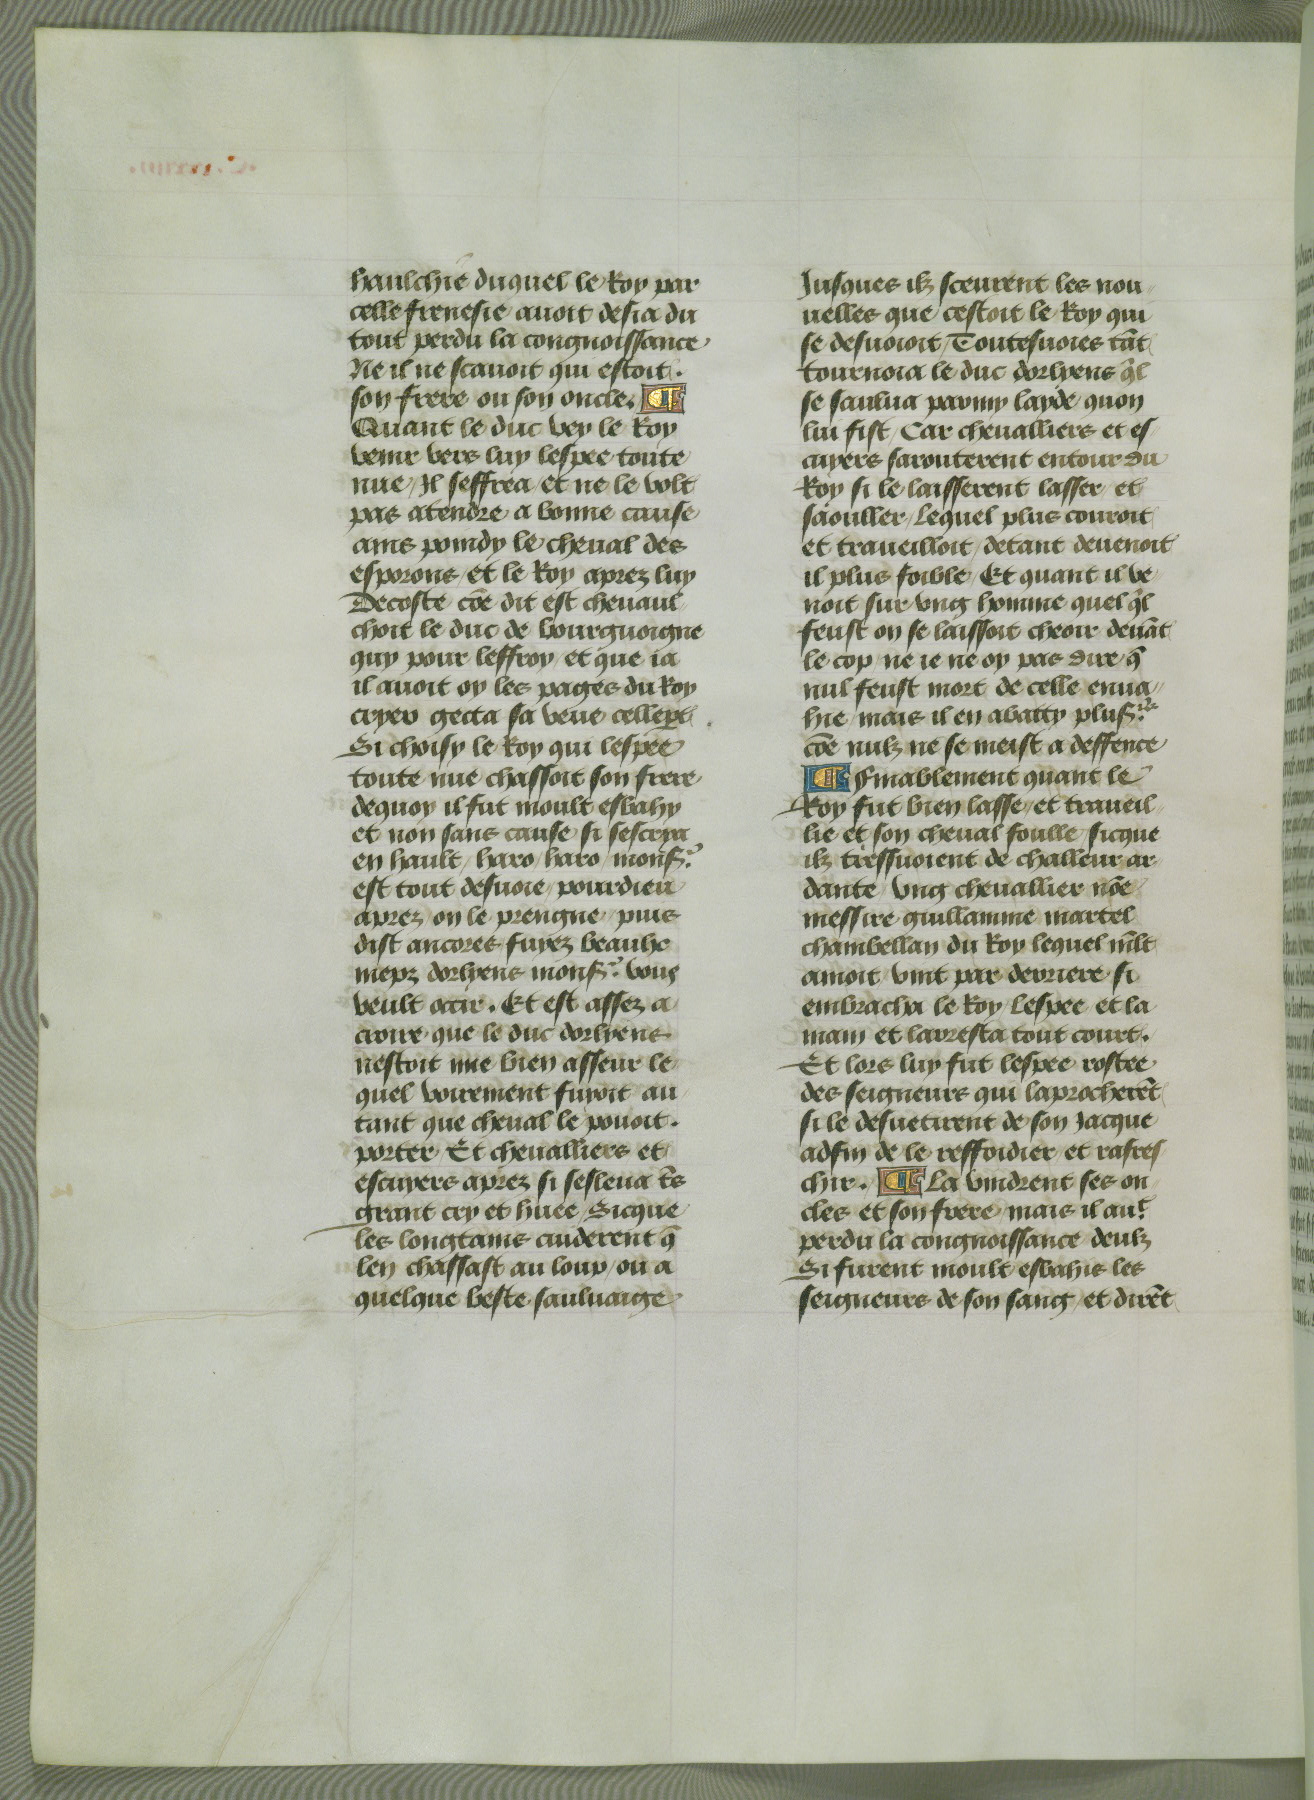 haulchie duquel le Roy par
celle frenesie auoit desia du
tout perdu la congnoissance
Ne il ne scauoit qui estoit.
son frere ou son oncle. ¶
Quant le duc vey le Roy
venir vers luy lespee toute
nue / Il seffrea / et ne le volt
pas atendre a bonne cause
ains poindy le cheual des
esporons / et le Roy aprez luy
Decoste cōe dit est cheuaul
choit le duc de bourguoigne
quy pour leffroy / et que ia
il auoit oy les pages du Roy
cryer gecta sa veue celle pt
Si choisy le Roy qui lespee
toute nue chassoit son frere
dequoy il fut moult esbahy
et non sans cause / si sescrya
en hault / haro / haro / monsr
est tout desuoie / pourdieu
aprez / on le prengne / puis
dist ancores fuyez beauhc
niepz dorlyens monsr vous
veult occir. Et est assez a
croire que le duc dorlyens
nestoit mie bien asseur le
quel voirement fuyoit au
tant que cheual le pouoit.
porter / Et cheualliers et
escuyers aprez si sesleua tēs
grant cry et huee / Sicque
les longtains cuiderent q̄
len chassast au loup / ou a
quelque beste sauluaige
Jusques ilz sceurent les nou
uelles que cestoit le Roy qui
se desuoioit / Toutesuoies tāt
tournoia le duc dorlyens q̄l
se saulua parmy layde quon
lui fist / Car cheualliers et es
cuyers sarouterent entour du
Roy si le laisserent lasser / et
saouller / Lequel plus couroit
et traueilloit / detant deuenoit
il plus foible / Et quant il ve
noit sur vng homme quel q̄l
feust on se laissoit cheoir deuāt
le cop / ne ie ne oy pas dire / q̄
nul feust mort de celle enua
hie / mais il en abatty plusrs
cōe nulz ne se meist a deffence
¶ Finablement quant le
Roy fut bien lasse / et traueil
lie et son cheual foulle / sicque
ilz tressuoient de challeur ar
dante / vng cheuallier nōe
messire guillamme martel
chambellan du Roy lequel mlt
amoit vint par derriere si
embracha le Roy / Lespee et la
main et larresta tout court.
Et lors luy fut lespee rostee
des seigneurs qui laprocherēt
si le desuetirent de son Jacque
adfin de le reffoidier et rafres
chir. ¶ La vindrent ses on
cles et son frere / mais il aut
perdu la congnoissance deulz
Si furent moult esbahis les
seigneurs de son sang / et dirēt